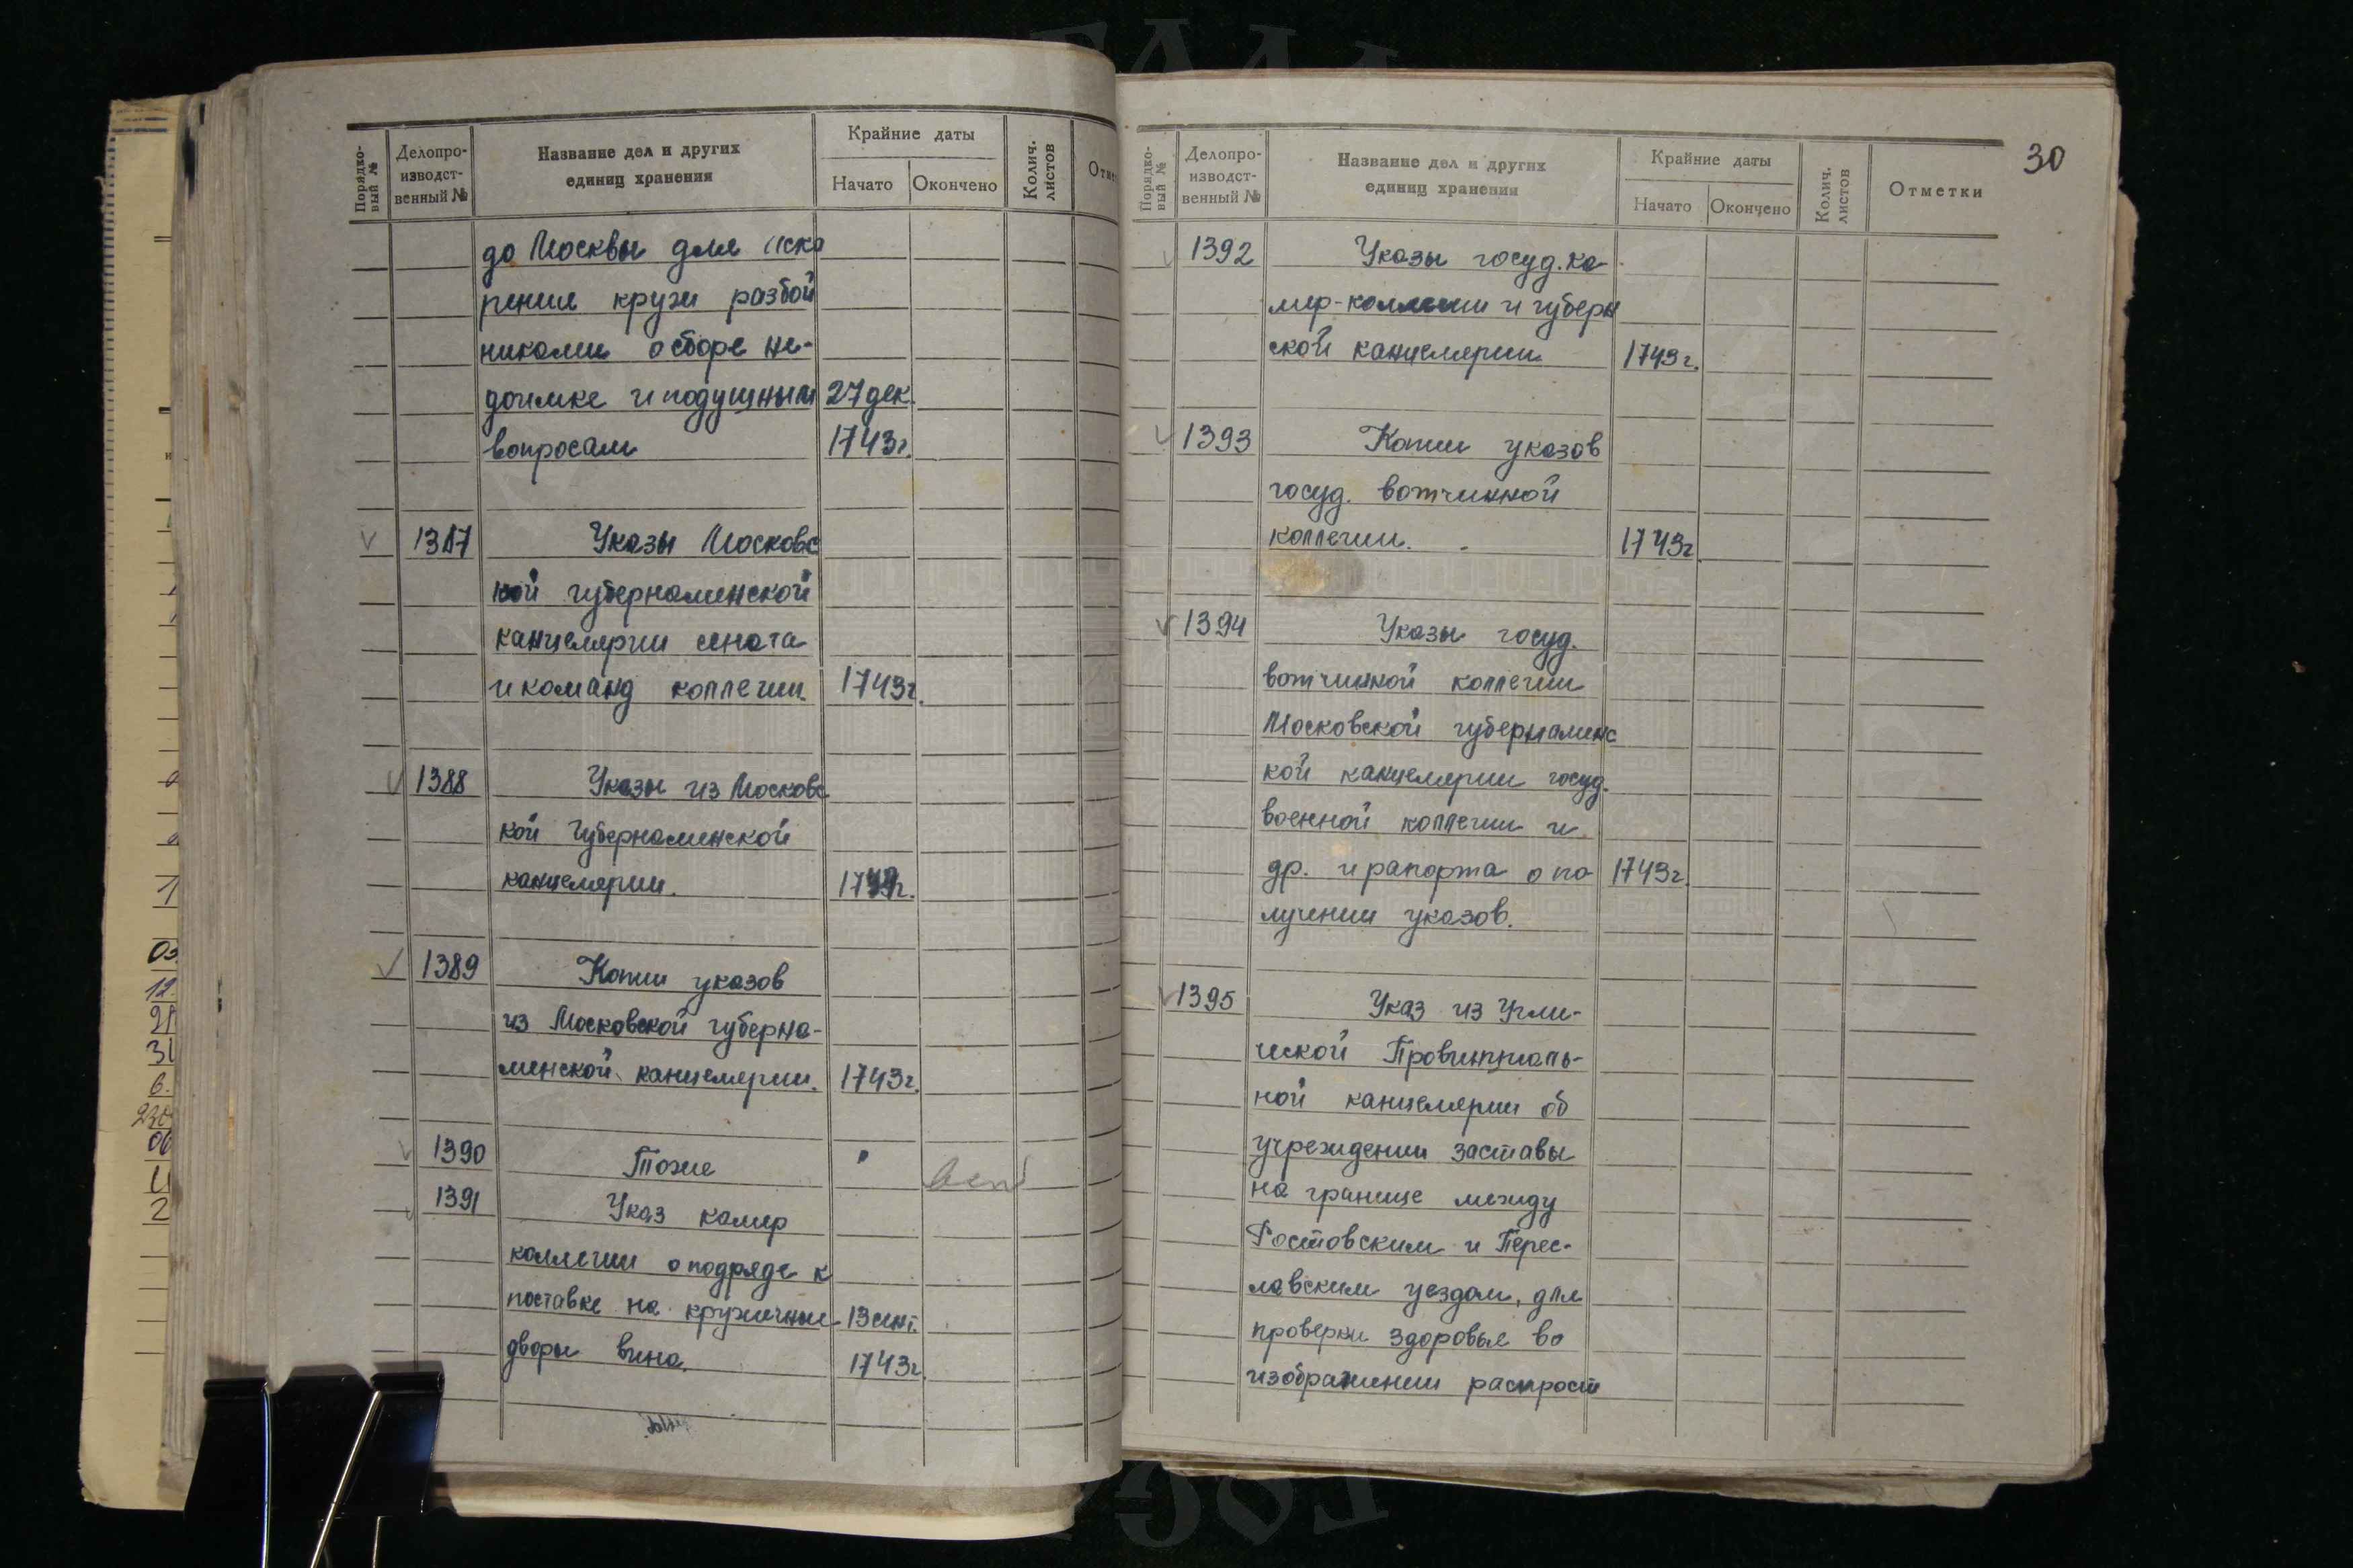 Порядко-
вый №
Делопро-
изводст-
венный №
Название дел и других
единиц хранения
Крайние даты
Начато
Окончено
Колич.
листов
до Москвы для иско
рения кражи разбой
никами о сборе не-
доимке и подушным 27 дек.
вопросам 1743г.
1387 Указы Московс
кой губернаминской
канцелярии сената
и команд коллегии. 1743г.
1388 Указы из Московс
кой губернаминской
канцелярии.
1389 Копии указов
из Московской губерна-
минской канцелярии. 1743г.
1390 Тоже "
1391 Указ камер
коллегии о подряде к
поставке на кружечные 13 сент.
дворы вина. 1743г.
30
Порядко-
вый №
Делопро-
изводст-
венный №
Название дел и других
единиц хранения
Крайние даты
Начато
Окончено
Колич.
листов
Отметки
1392 Указы госуд. ка-
мер-коллегии и губерн
ской канцелярии 1743г.
1393 Копии указов
госуд. вотчинной
коллегии. 1743г
1394 Указы госуд.
вотчинной коллегии
Московской губернаминс
кой канцелярии госуд.
военной коллегии и
др. и рапорта о по 1743г.
лучении указов.
1395 Указ из Угли-
ческой Провинциаль-
ной канцелярии об
учреждении заставы
на границе между
Ростовским и Перес-
лавским уездам, для
проверки здоровья во
изображении распрост